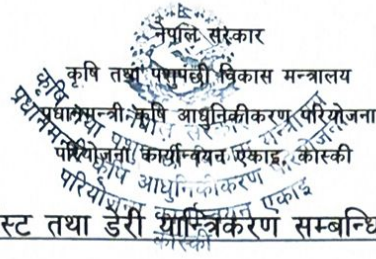 नेपाल सरकार
कृषि तथा पशुपंछी विकास मन्त्रालय
प्रधानमन्त्री कृषि आधुनिकीकरण परियोजना
परियोजना कार्यान्वयन एकाइ, कास्की
स्ट तथा डेरी यान्त्रिकरण सम्बन्धि